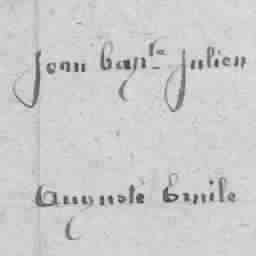 Jean bapte julien
Auguste Emile